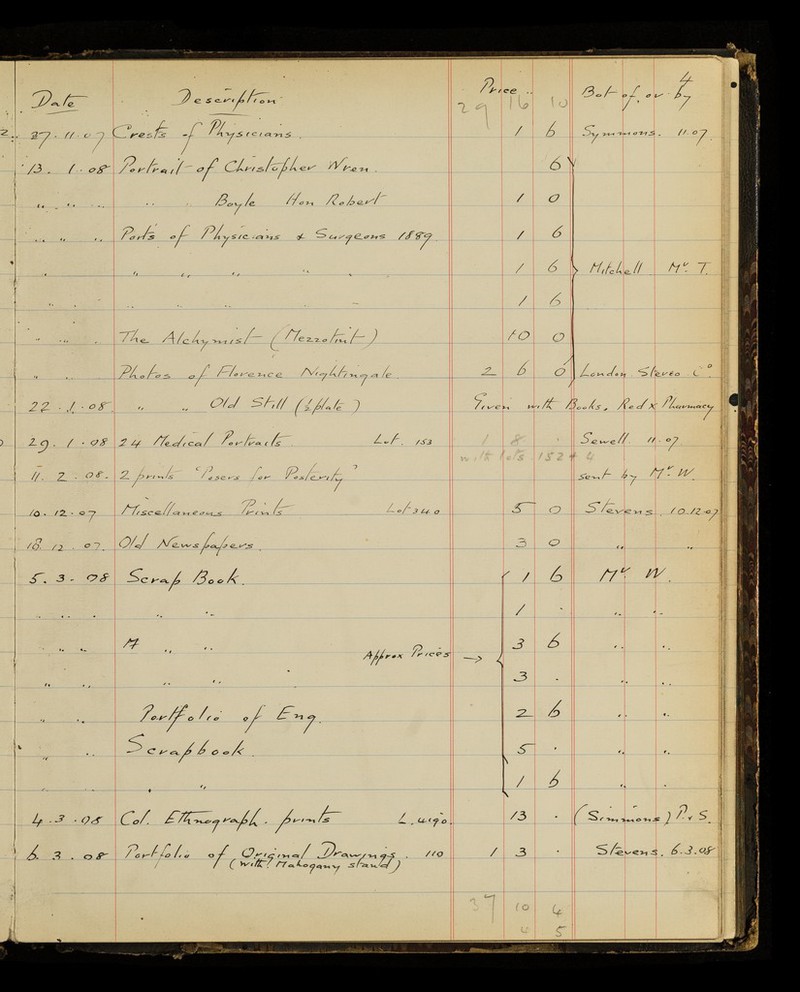 4
Date Description Price .. Bot of, or by
29 16 10
27. 11. 07 Crests of Physicians. 1 6 Symmons. 11.07.
13. 1. 08 Portrait of Christopher Wren. 6
" " " " " Boyle Hon Robert 1 0
" " " Ports of Physicians & Surgeons 1889. 1 6
" " " " " 1 6 Mitchell Mr. T.
" " " " " 1 6
" " " The Alchymist (Mezzotint) 10 0
" " Photos of Florence Nightingale. 2 6 0 London Stereo Co.
22. 1. 08. " " Old Still (½ plate) Given with Books, Red X Pharmacy
29. 1. 08 24 Medical Portraits Lot. 153 1 8 . Sewell. 11.07
with lots 152 + 4
11. 2. 08. 2 prints "Posers for Posterity" sent by Mr. W.
10. 12. 07 Miscellaneous Prints Lot 340 5 0 Stevens. 10.12.07
18. 12. 07. Old Newspapers. 3 0 " "
5. 3. 08 Scrap Book. 1 6 Mr. W.
" " " " " 1 . " "
" " " " " 3 6 " "
Approx Prices →
" " " " 3 . " "
" " Portfolio of Eng. 2 6 " "
" " Scrapbook. 5 . " "
" " " " 1 6 " "
4. 3. 08 Col. Ethnograph. prints 13 . (Simmons) P. & S.
6. 3. 08 Portfolio of Original Drawings. 110 1 3 . Stevens. 6.3.08
(with Mahogany stand)
37 10 4
4 5